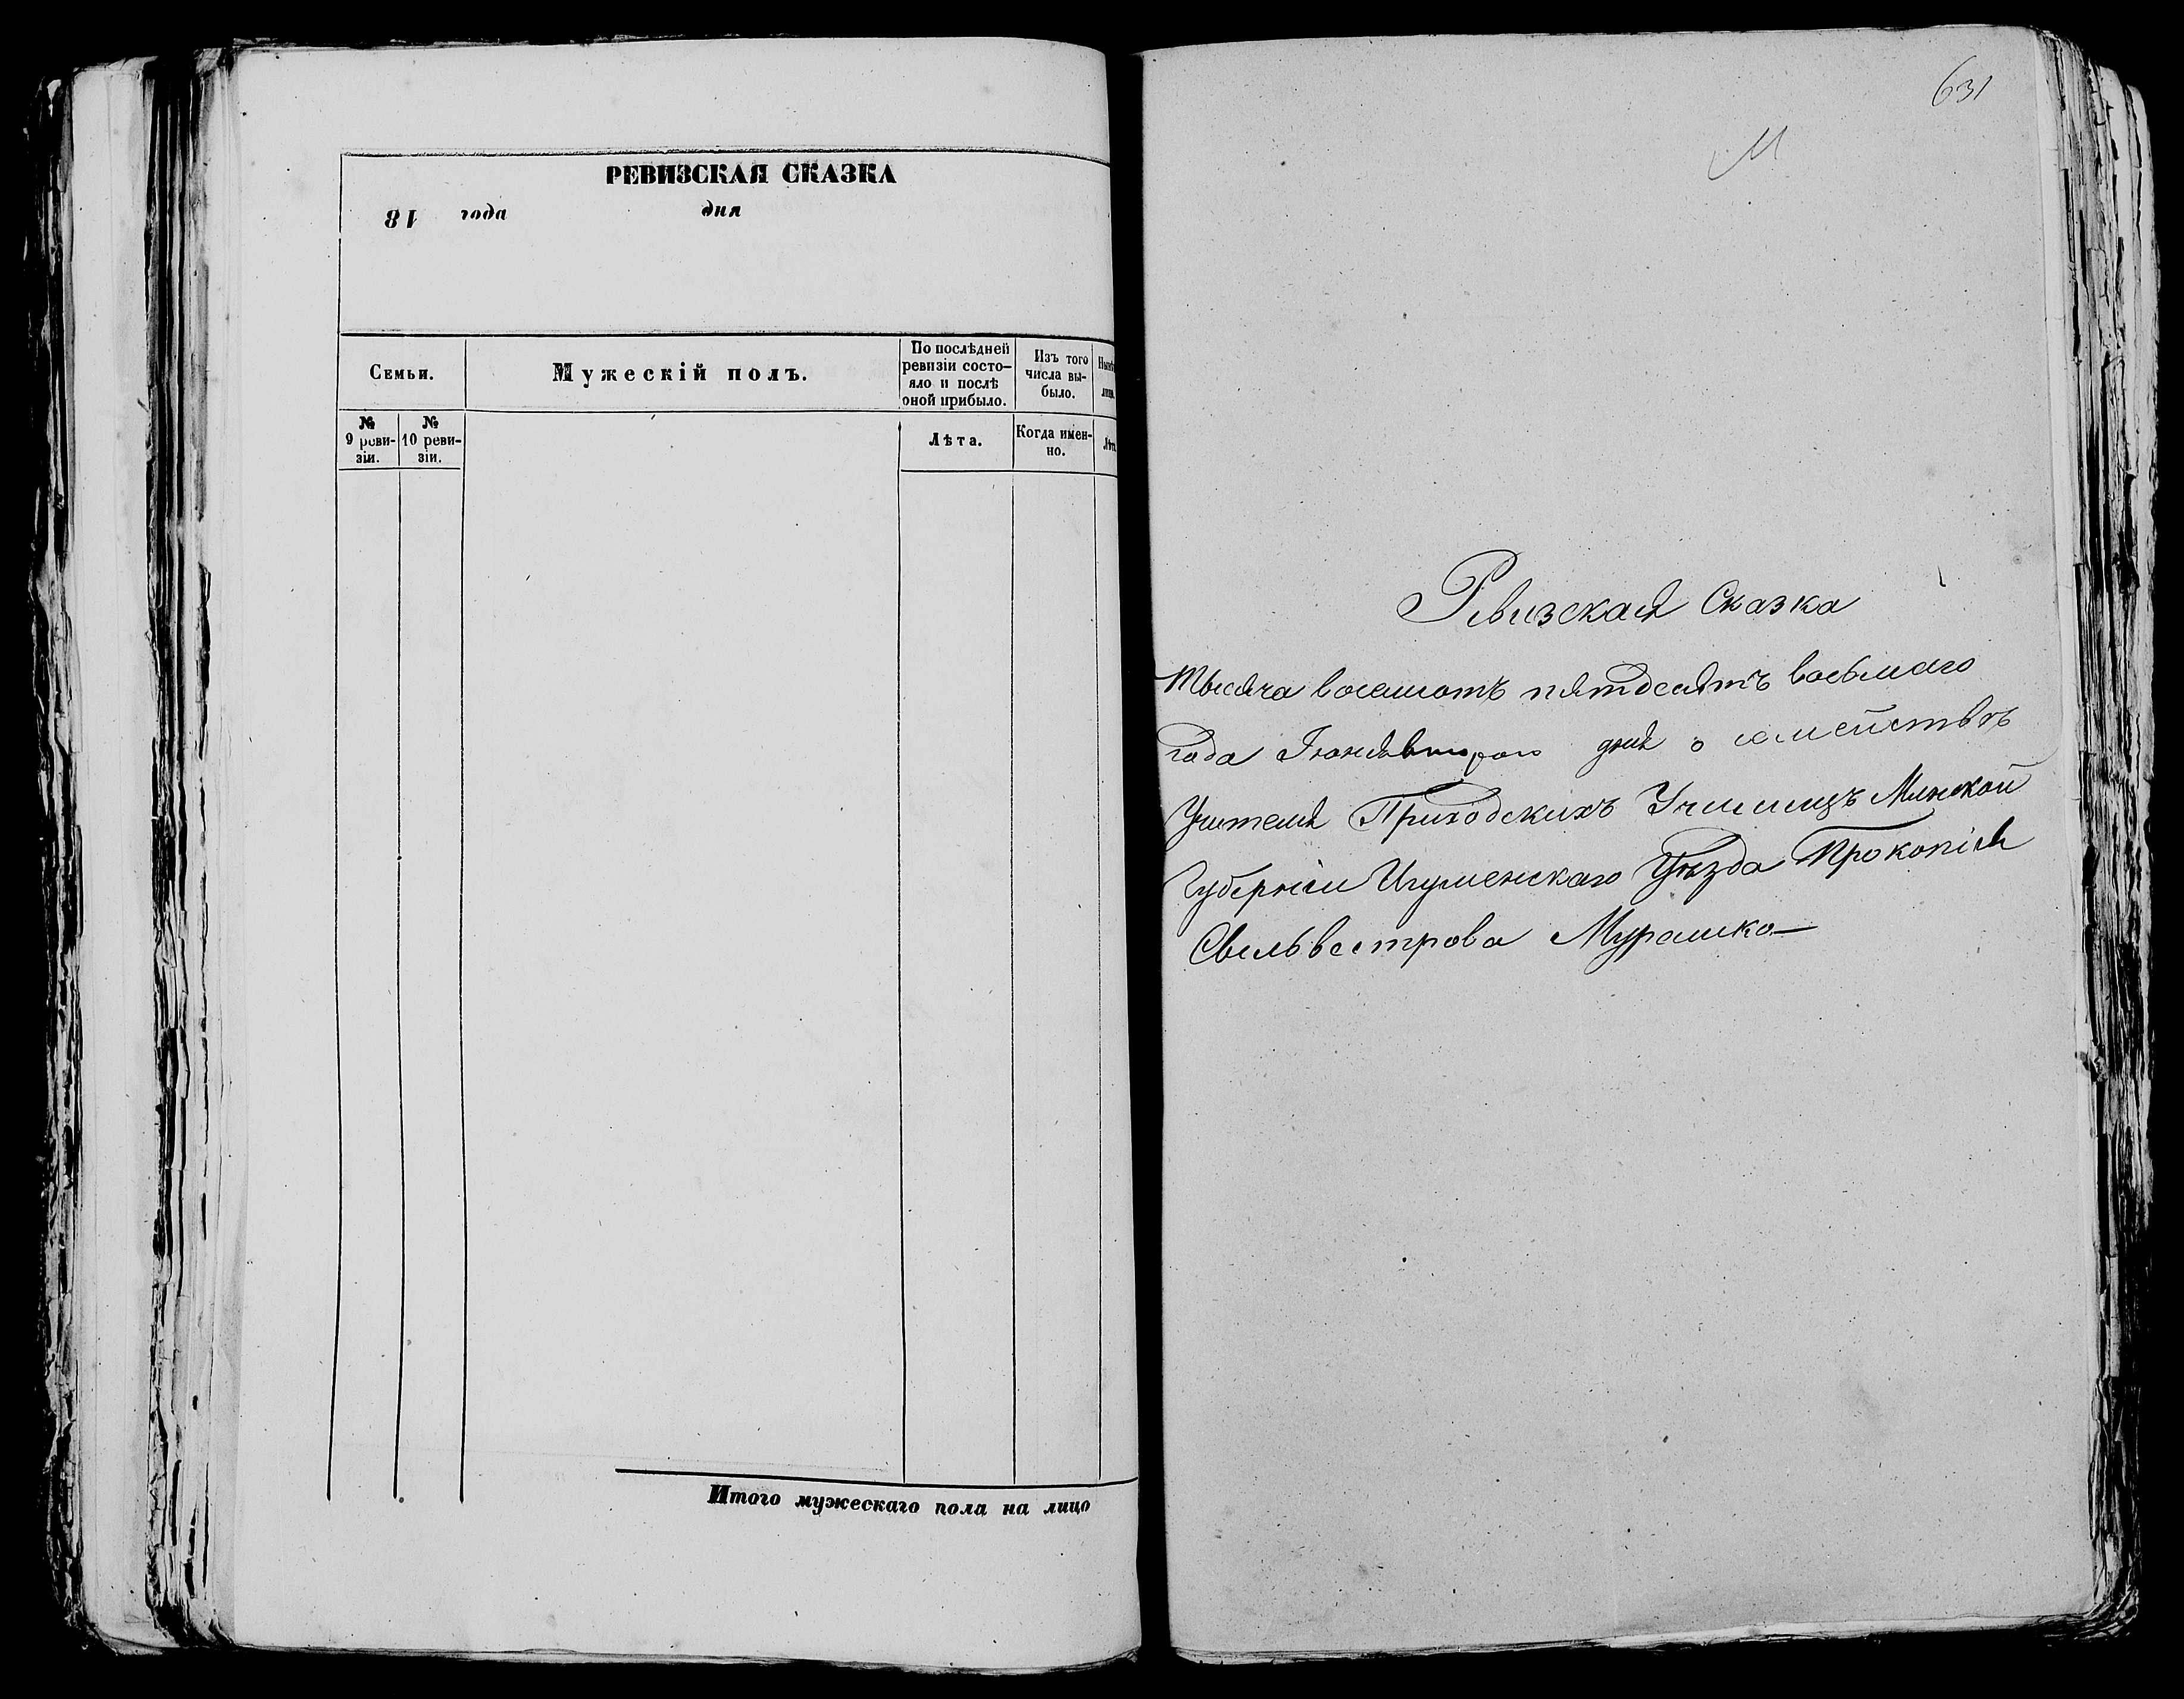 РЕВИЗСКАЯ СКАЗКА
18 года дня
Семьи.
Мужескій полъ.
По послѣдней ревизіи состо-
яло и послѣ
оной прибыло.
Изъ того
числа вы-
было.
№
9 реви-
зіи.
№
10 реви-
зіи.
Лѣта.
Когда имен-
но.
Итого мужескаго пола на лицо
631
М
Ревизская Сказка
Тысяча восемьсотъ пятдесятъ восьмаго
года Іюня второго дня о семействѣ
Учителя Приходскихъ Училищъ Минской
Губерніи Игуменскаго Уѣзда Прокопія
Сильвестрова Мурашко